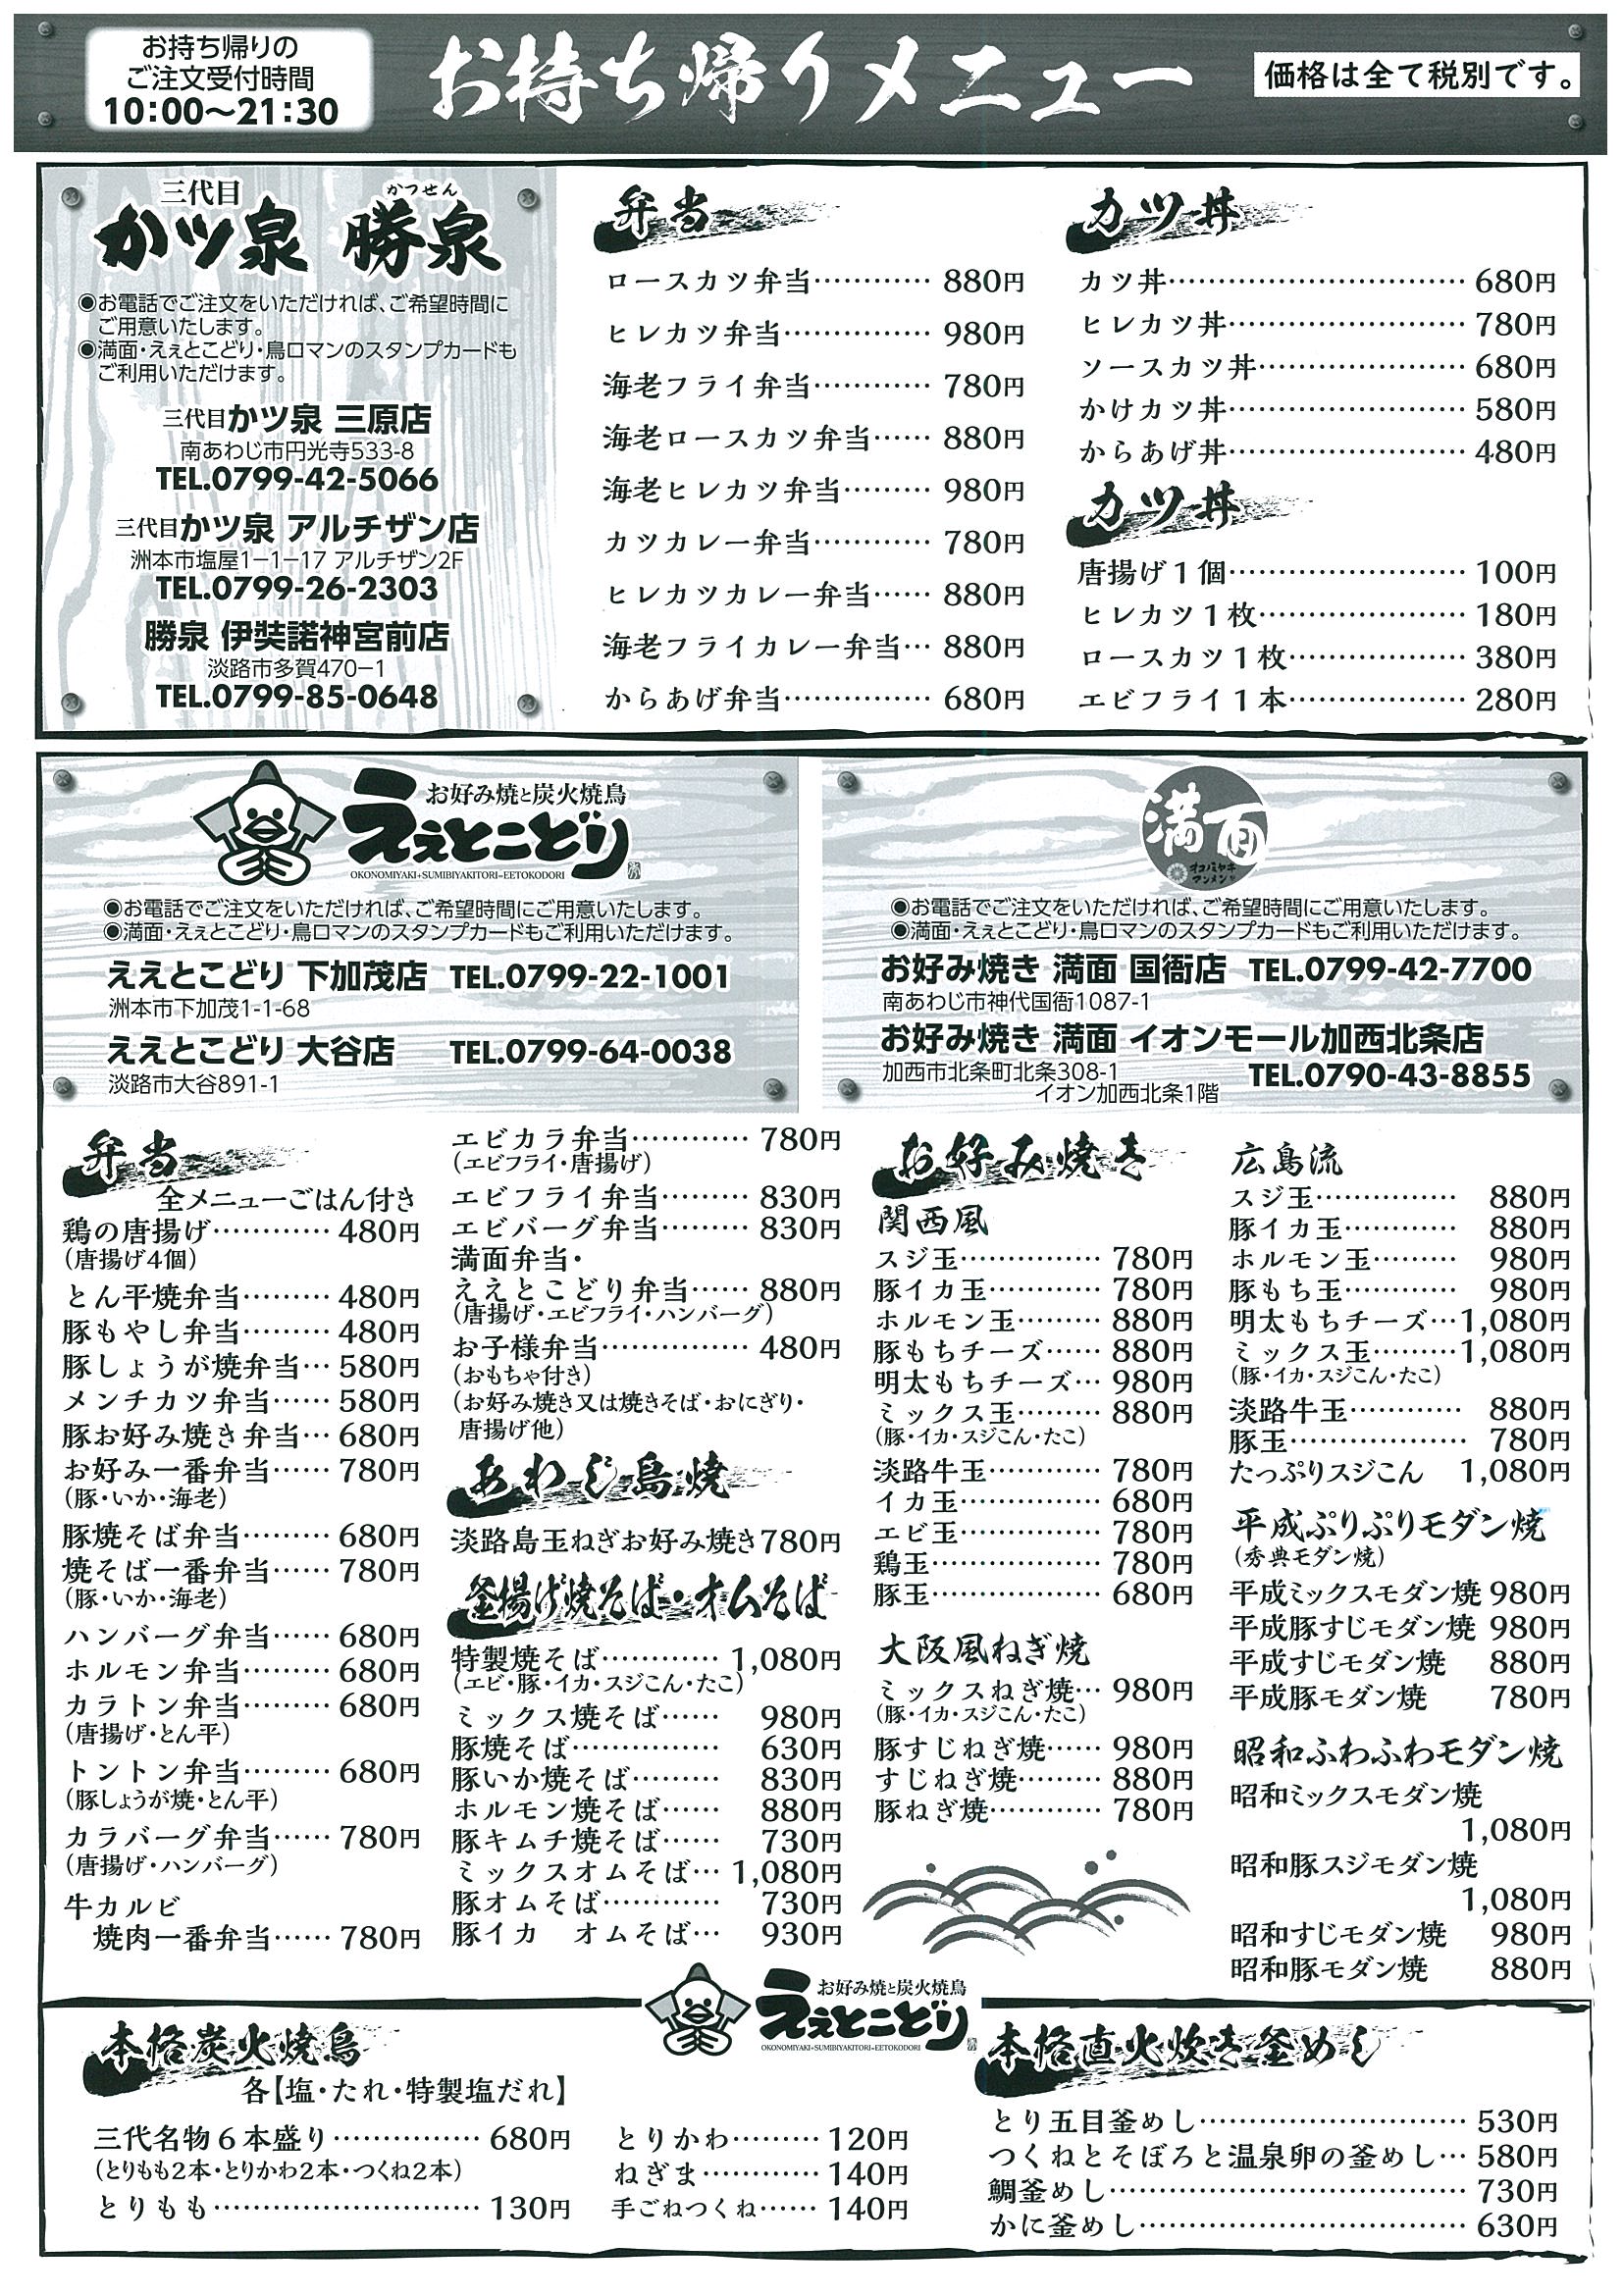 お持ち帰りの
ご注文受付時間
10：00〜21：30
お持ち帰りメニュー
価格は全て税別です。
三代目
かつせん
かツ泉 勝泉
◉お電話でご注文をいただければ、ご希望時間に
ご用意いたします。
◉満面・ええとこどり・鳥ロマンのスタンプカードも
ご利用いただけます。
三代目かツ泉 三原店
南あわじ市円光寺533-8
TEL.0799-42-5066
三代目かツ泉 アルチザン店
洲本市塩屋1−1−17 アルチザン2F
TEL.0799-26-2303
勝泉 伊弉諾神宮前店
淡路市多賀470−1
TEL.0799-85-0648
弁当
ロースカツ弁当………… 880円
ヒレカツ弁当…………… 980円
海老フライ弁当………… 780円
海老ロースカツ弁当…… 880円
海老ヒレカツ弁当……… 980円
カツカレー弁当………… 780円
ヒレカツカレー弁当…… 880円
海老フライカレー弁当… 880円
からあげ弁当…………… 680円
カツ丼
カツ丼………………………… 680円
ヒレカツ丼…………………… 780円
ソースカツ丼………………… 680円
かけカツ丼…………………… 580円
からあげ丼…………………… 480円
カツ丼
唐揚げ１個…………………… 100円
ヒレカツ１枚………………… 180円
ロースカツ１枚……………… 380円
エビフライ１本……………… 280円
お好み焼と炭火焼鳥
ええとこどり
OKONOMIYAKI+SUMIBIYAKITORI=EETOKODORI
◉お電話でご注文をいただければ、ご希望時間にご用意いたします。
◉満面・ええとこどり・鳥ロマンのスタンプカードもご利用いただけます。
ええとこどり 下加茂店 TEL.0799-22-1001
洲本市下加茂1-1-68
ええとこどり 大谷店 TEL.0799-64-0038
淡路市大谷891-1
満面
オコノミヤキ
マンメン
◉お電話でご注文をいただければ、ご希望時間にご用意いたします。
◉満面・ええとこどり・鳥ロマンのスタンプカードもご利用いただけます。
お好み焼き 満面 国衙店 TEL.0799-42-7700
南あわじ市神代国衙1087-1
お好み焼き 満面 イオンモール加西北条店
加西市北条町北条308-1
イオン加西北条1階
TEL.0790-43-8855
弁当
全メニューごはん付き
鶏の唐揚げ………… 480円
（唐揚げ4個）
とん平焼弁当……… 480円
豚もやし弁当……… 480円
豚しょうが焼弁当… 580円
メンチカツ弁当…… 580円
豚お好み焼き弁当… 680円
お好み一番弁当…… 780円
（豚・いか・海老）
豚焼そば弁当……… 680円
焼そば一番弁当…… 780円
（豚・いか・海老）
ハンバーグ弁当…… 680円
ホルモン弁当……… 680円
カラトン弁当……… 680円
（唐揚げ・とん平）
トントン弁当……… 680円
（豚しょうが焼・とん平）
カラバーグ弁当…… 780円
（唐揚げ・ハンバーグ）
牛カルビ
焼肉一番弁当…… 780円
エビカラ弁当………… 780円
（エビフライ・唐揚げ）
エビフライ弁当……… 830円
エビバーグ弁当……… 830円
満面弁当・
ええとこどり弁当…… 880円
（唐揚げ・エビフライ・ハンバーグ）
お子様弁当…………… 480円
（おもちゃ付き）
（お好み焼き又は焼きそば・おにぎり・
唐揚げ他）
あわじ島焼
淡路島玉ねぎお好み焼き780円
釜揚げ焼そば・オムそば
特製焼そば………… 1,080円
（エビ・豚・イカ・スジこん・たこ）
ミックス焼そば…… 980円
豚焼そば…………… 630円
豚いか焼そば……… 830円
ホルモン焼そば…… 880円
豚キムチ焼そば…… 730円
ミックスオムそば… 1,080円
豚オムそば………… 730円
豚イカ オムそば… 930円
お好み焼き
関西風
スジ玉…………… 780円
豚イカ玉………… 780円
ホルモン玉……… 880円
豚もちチーズ…… 880円
明太もちチーズ… 980円
ミックス玉……… 880円
（豚・イカ・スジこん・たこ）
淡路牛玉………… 780円
イカ玉…………… 680円
エビ玉…………… 780円
鶏玉……………… 780円
豚玉……………… 680円
大阪風ねぎ焼
ミックスねぎ焼… 980円
（豚・イカ・スジこん・たこ）
豚すじねぎ焼…… 980円
すじねぎ焼……… 880円
豚ねぎ焼………… 780円
広島流
スジ玉…………… 880円
豚イカ玉………… 880円
ホルモン玉……… 980円
豚もち玉………… 980円
明太もちチーズ…1,080円
ミックス玉………1,080円
（豚・イカ・スジこん・たこ）
淡路牛玉………… 880円
豚玉……………… 780円
たっぷりスジこん 1,080円
平成ぷりぷりモダン焼
（秀典モダン焼）
平成ミックスモダン焼 980円
平成豚すじモダン焼 980円
平成すじモダン焼 880円
平成豚モダン焼 780円
昭和ふわふわモダン焼
昭和ミックスモダン焼
1,080円
昭和豚スジモダン焼
1,080円
昭和すじモダン焼 980円
昭和豚モダン焼 880円
お好み焼と炭火焼鳥
ええとこどり
OKONOMIYAKI+SUMIBIYAKITORI=EETOKODORI
本格炭火焼鳥
各【塩・たれ・特製塩だれ】
三代名物６本盛り…………… 680円
（とりもも2本・とりかわ2本・つくね2本）
とりもも……………………… 130円
とりかわ……… 120円
ねぎま………… 140円
手ごねつくね…… 140円
本格直火炊き釜めし
とり五目釜めし……………………… 530円
つくねとそぼろと温泉卵の釜めし… 580円
鯛釜めし……………………………… 730円
かに釜めし…………………………… 630円